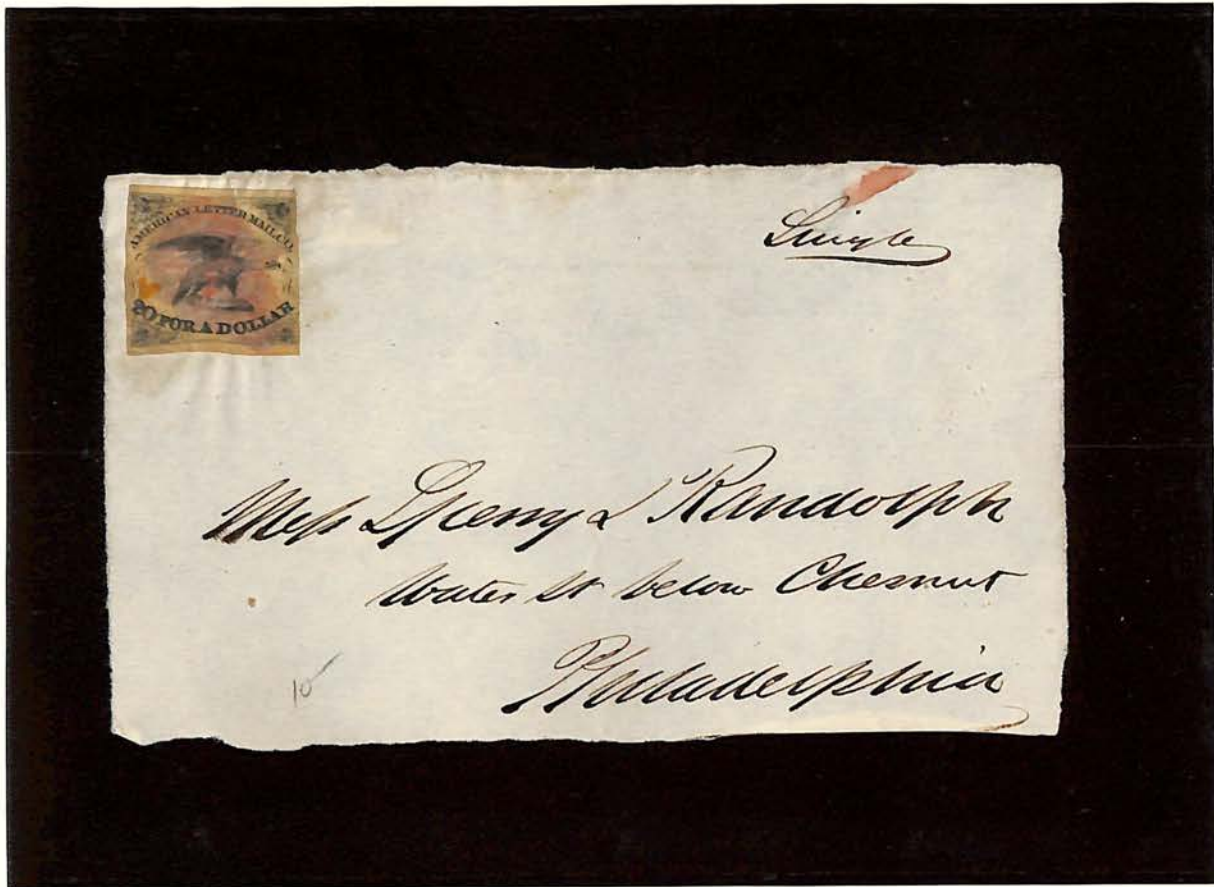 AMERICAN LETTER MAIL CO.
20 FOR A DOLLAR
Single
Mess & Randolph
Water St below Chesnut
Philadelphia
10